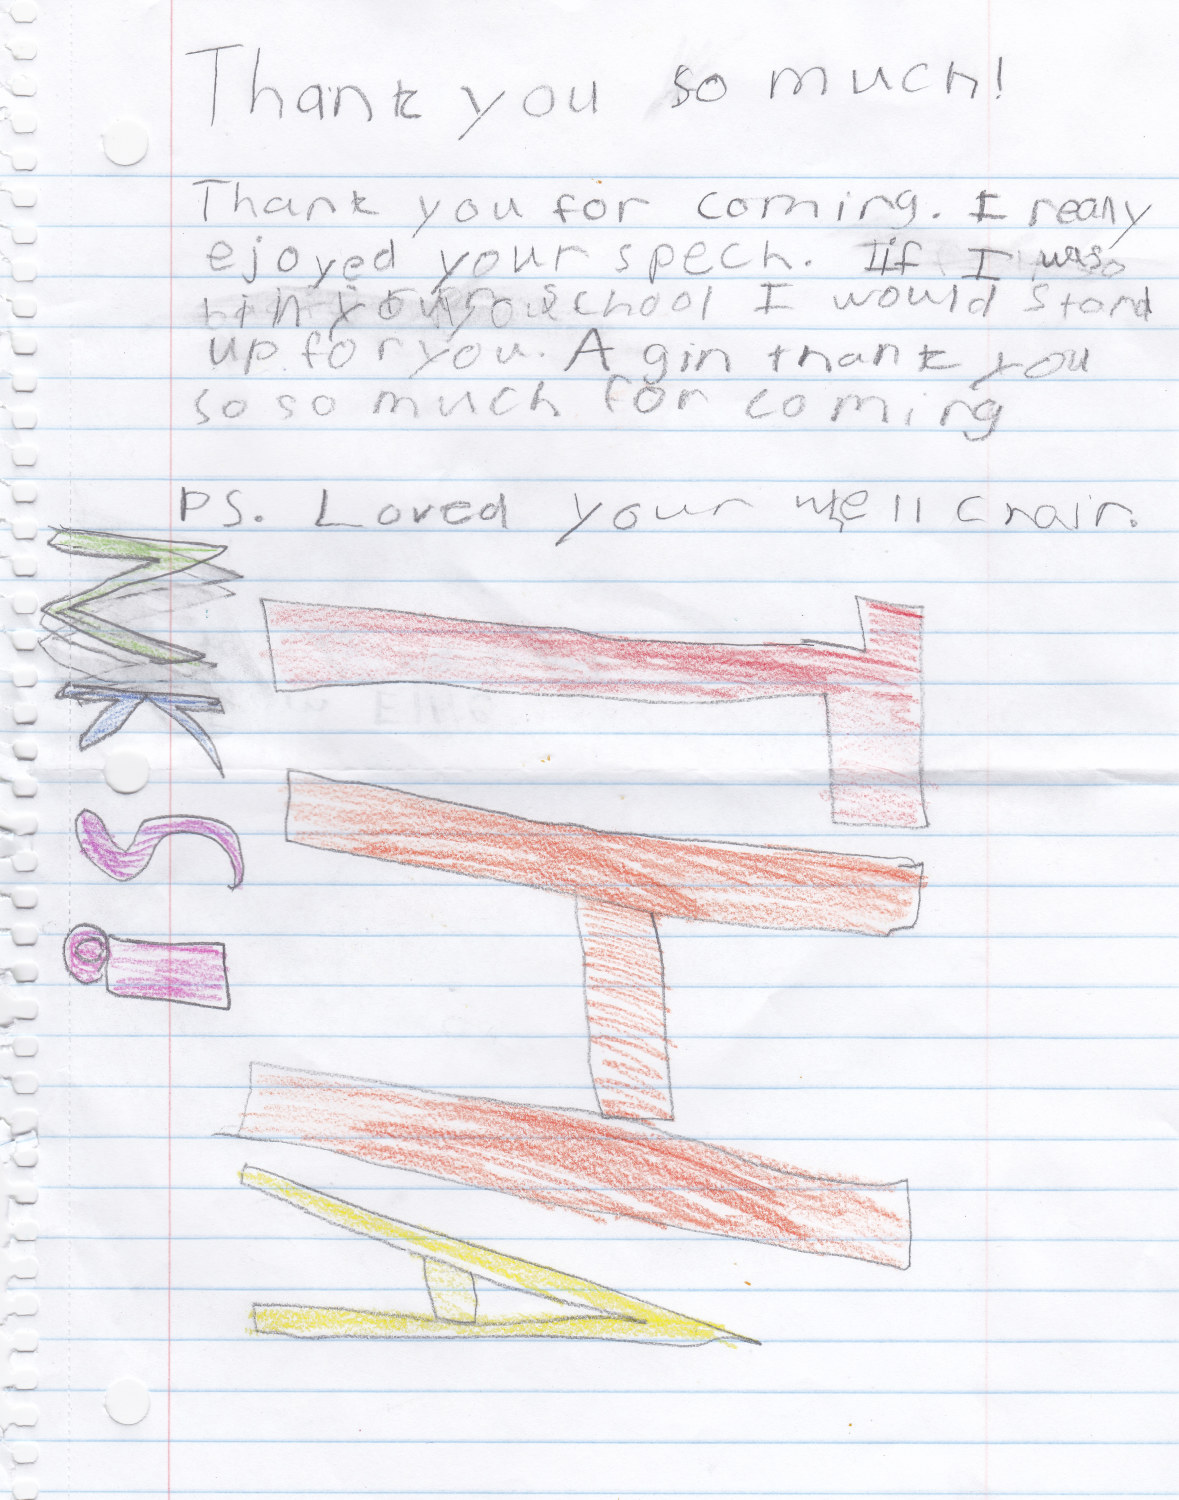 Thank you so much!
Thank you for coming. I really
ejoyed your spech. Iif I was
in your school I would stand
up for you. A gin thank you
so so much for coming
PS. Loved your well chair.
THA
NKS!